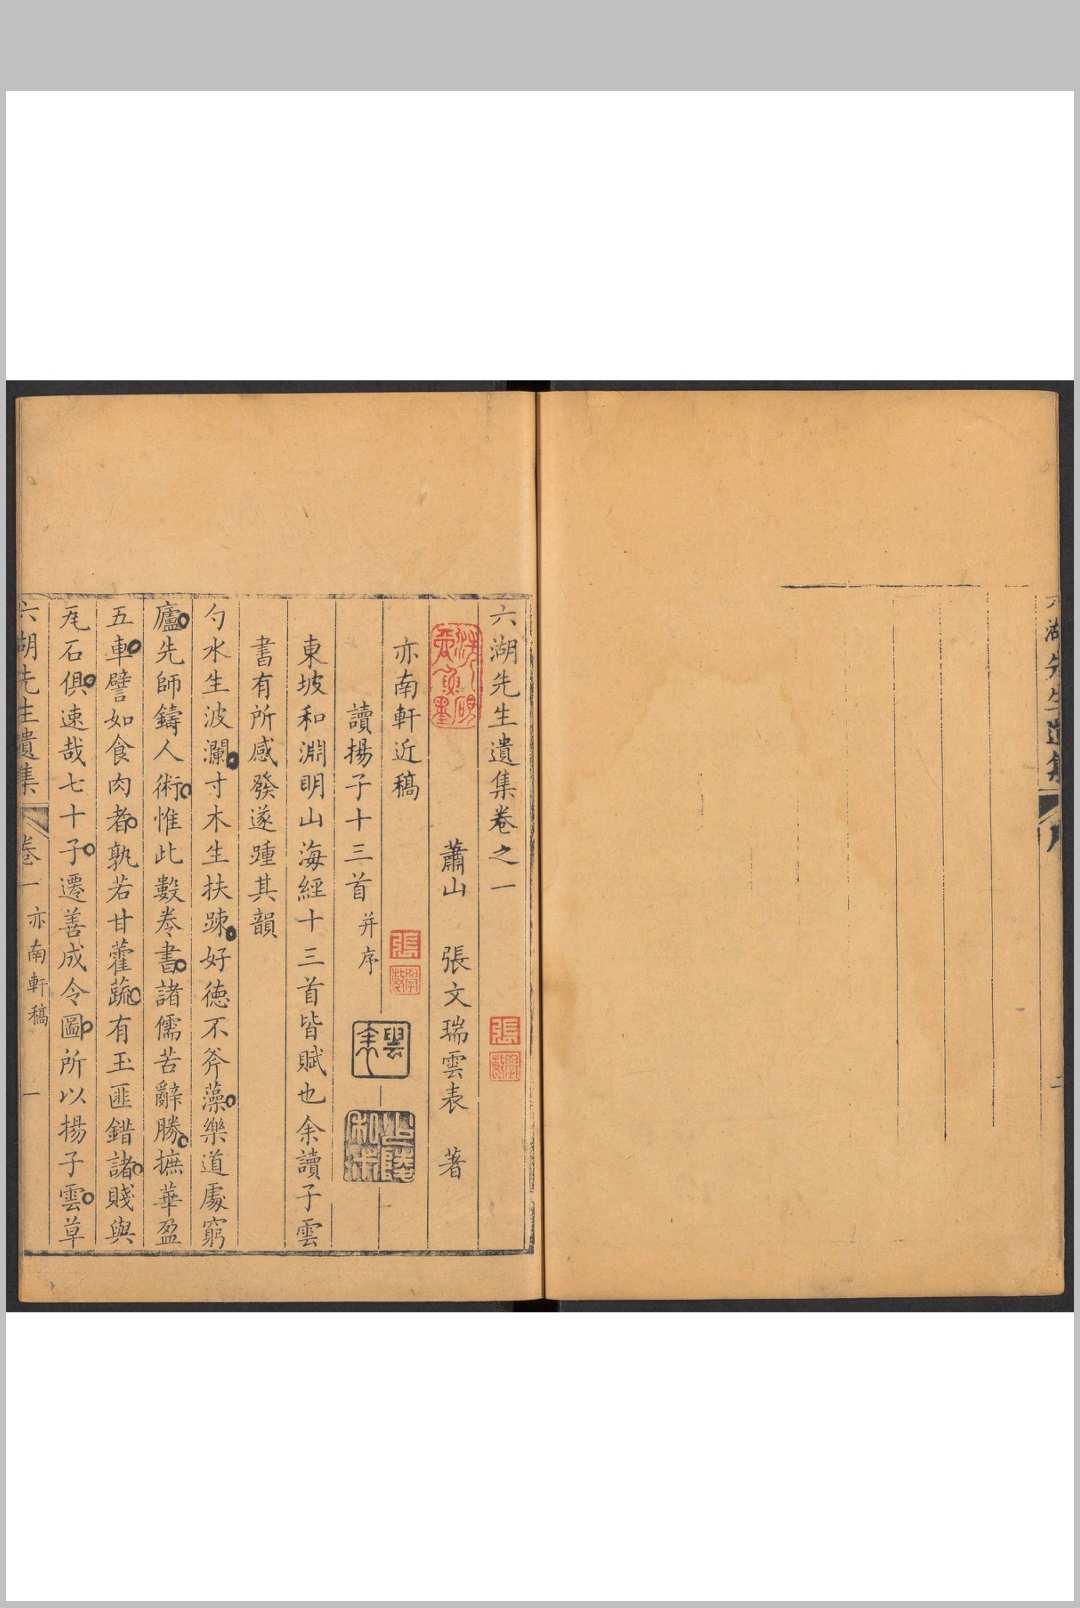 六湖先生遺集
二
六湖先生遺集卷之一
蕭山 張文瑞雲表 著
亦南軒近稿
讀揚子十三首 并序
東坡和淵明山海經十三首皆賦也余讀子雲
書有所感發遂踵其韻
勺水生波瀾寸木生扶疎好德不斧藻樂道處窮
廬先師鑄人術惟此數卷書諸儒苦辭勝摭華盈
五車譬如食肉者孰若甘藿蔬有玉匪錯諸賤與
瓦石俱速哉七十子遷善成令圖所以揚子雲草
六湖先生遺集
卷一 亦南軒稿
一